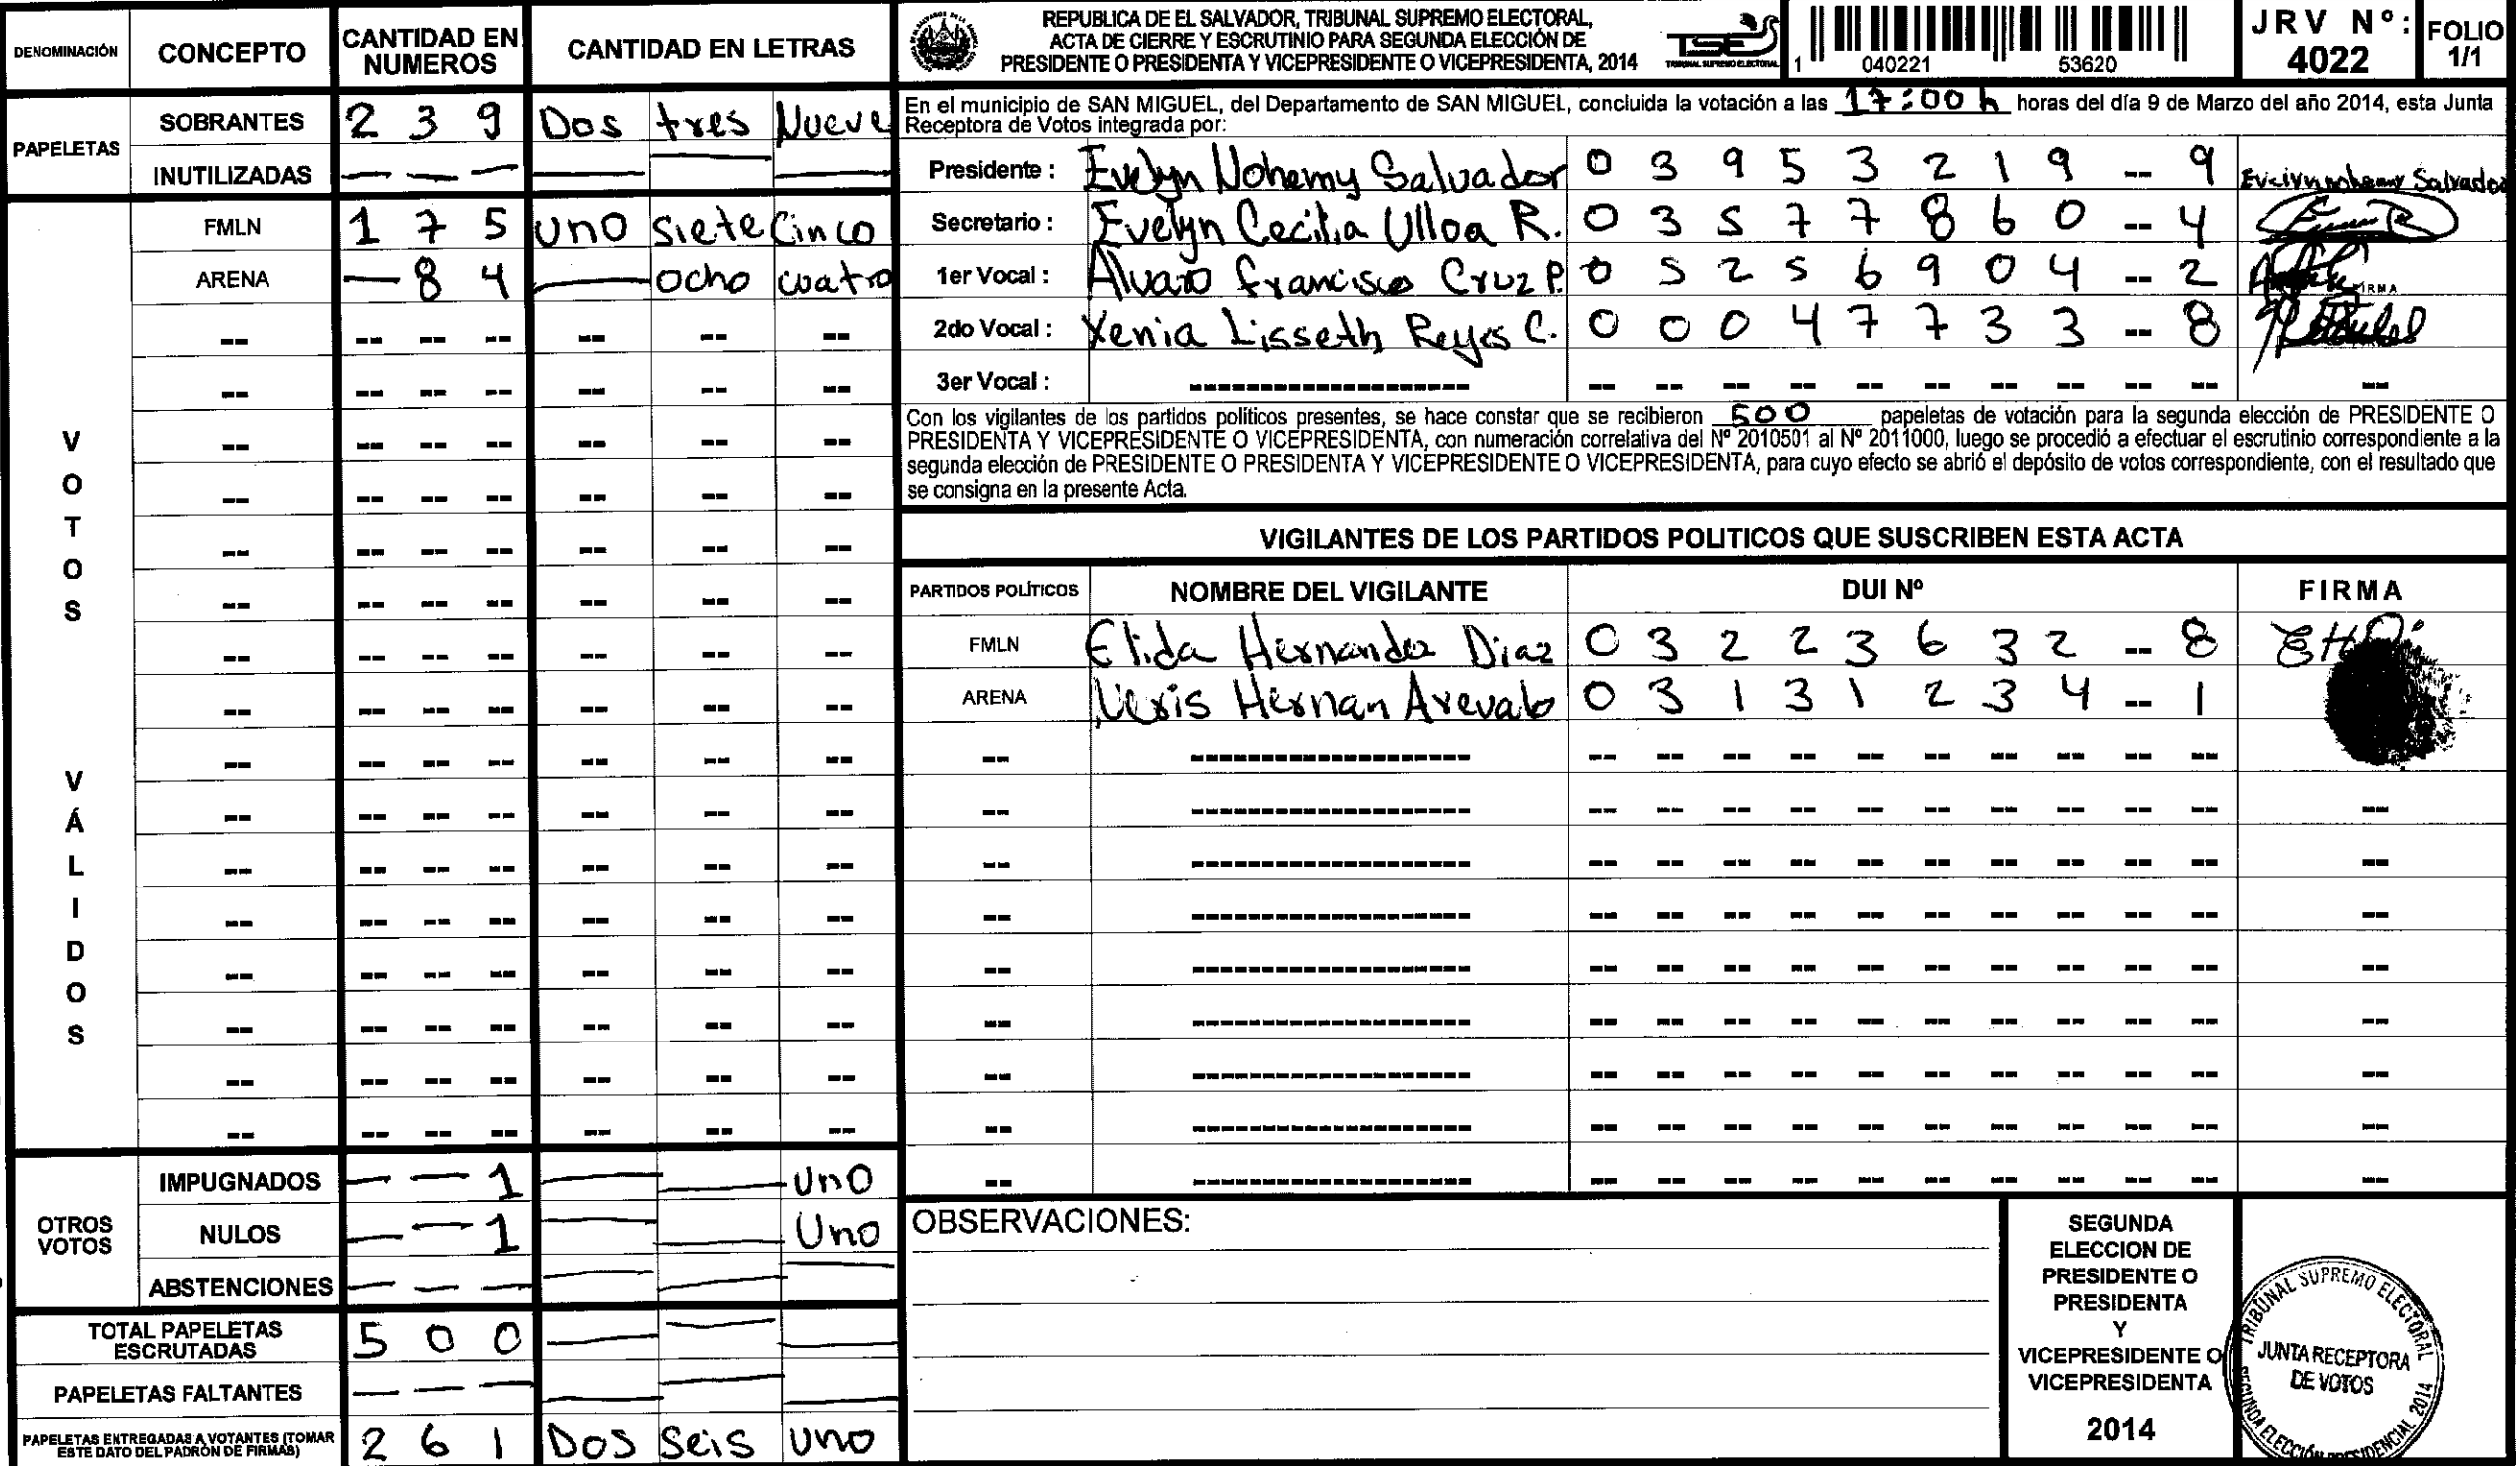 DENOMINACIÓN CONCEPTO CANTIDAD EN NUMEROS CANTIDAD EN LETRAS
PAPELETAS
SOBRANTES 2 3 9 Dos tres Nueve
INUTILIZADAS — — —
VOTOS VÁLIDOS
FMLN 1 7 5 uno siete Cinco
ARENA — 8 4 — ocho cuatro
OTROS VOTOS
IMPUGNADOS — — 1 — — Uno
NULOS — — 1 — — Uno
ABSTENCIONES — — —
TOTAL PAPELETAS ESCRUTADAS 5 0 0 — — —
PAPELETAS FALTANTES — — —
PAPELETAS ENTREGADAS A VOTANTES (TOMAR ESTE DATO DEL PADRÓN DE FIRMAS) 2 6 1 Dos Seis uno
REPUBLICA DE EL SALVADOR, TRIBUNAL SUPREMO ELECTORAL,
ACTA DE CIERRE Y ESCRUTINIO PARA SEGUNDA ELECCIÓN DE
PRESIDENTE O PRESIDENTA Y VICEPRESIDENTE O VICEPRESIDENTA, 2014
TSE
TRIBUNAL SUPREMO ELECTORAL
1 040221 53620
JRV Nº: 4022
FOLIO 1/1
En el municipio de SAN MIGUEL, del Departamento de SAN MIGUEL, concluida la votación a las 17:00 h horas del día 9 de Marzo del año 2014, esta Junta
Receptora de Votos integrada por:
Presidente : Evelyn Nohemy Salvador 0 3 9 5 3 2 1 9 -- 9 Evelyn nohemy Salvador
Secretario : Evelyn Cecilia Ulloa R. 0 3 5 7 7 8 6 0 -- 4
1er Vocal : Alvaro francisco Cruz P. 0 5 2 5 6 9 0 4 -- 2 FIRMA
2do Vocal : Xenia Lisseth Reyes C. 0 0 0 4 7 7 3 3 -- 8
3er Vocal :
Con los vigilantes de los partidos politicos presentes, se hace constar que se recibieron 500 papeletas de votación para la segunda elección de PRESIDENTE O
PRESIDENTA Y VICEPRESIDENTE O VICEPRESIDENTA, con numeración correlativa del Nº 2010501 al Nº 2011000, luego se procedió a efectuar el escrutinio correspondiente a la
segunda elección de PRESIDENTE O PRESIDENTA Y VICEPRESIDENTE O VICEPRESIDENTA, para cuyo efecto se abrió el depósito de votos correspondiente, con el resultado que
se consigna en la presente Acta.
VIGILANTES DE LOS PARTIDOS POLITICOS QUE SUSCRIBEN ESTA ACTA
PARTIDOS POLÍTICOS NOMBRE DEL VIGILANTE DUI Nº FIRMA
FMLN Elida Hernandez Diaz 0 3 2 2 3 6 3 2 -- 8 EHD
ARENA Hernan Arevalo 0 3 1 3 1 2 3 4 -- 1
OBSERVACIONES:
SEGUNDA
ELECCION DE
PRESIDENTE O
PRESIDENTA
Y
VICEPRESIDENTE O
VICEPRESIDENTA
2014
TRIBUNAL SUPREMO ELECTORAL
JUNTA RECEPTORA
DE VOTOS
SEGUNDA ELECCIÓN PRESIDENCIAL 2014